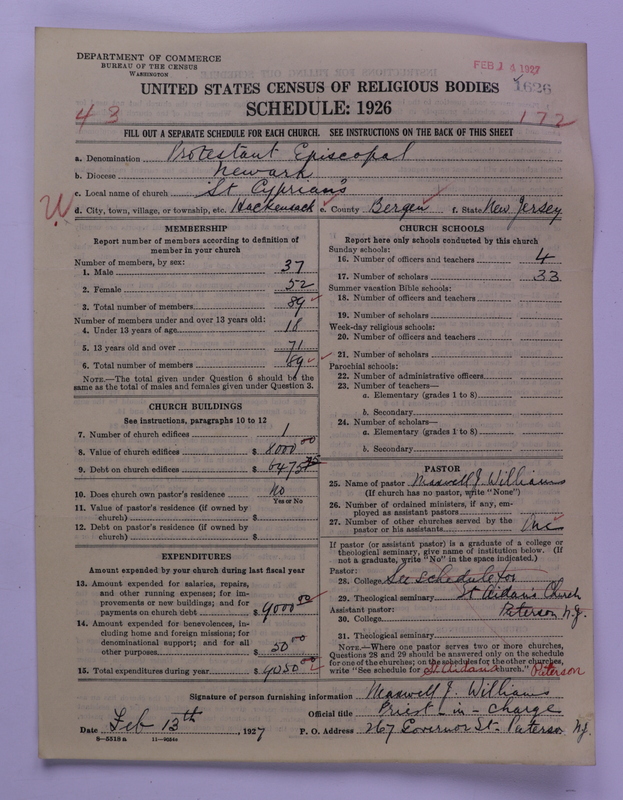 DEPARTMENT OF COMMERCE
BUREAU OF THE CENSUS
WASHINGTON
FEB 14 1927
UNITED STATES CENSUS OF RELIGIOUS BODIES
1626
SCHEDULE: 1926
43
172
FILL OUT A SEPARATE SCHEDULE FOR EACH CHURCH. SEE INSTRUCTIONS ON THE BACK OF THIS SHEET
a. Denomination Protestant Episcopal
b. Diocese Newark
c. Local name of church St Cyprian's
d. City, town, village, or township, etc. Hackensack e. County Bergen f. State New Jersey
MEMBERSHIP
Report number of members according to definition of member in your church
Number of members, by sex:
1. Male 37
2. Female 52
3. Total number of members 89
Number of members under and over 13 years old:
4. Under 13 years of age 18
5. 13 years old and over 71
6. Total number of members 89
NOTE.—The total given under Question 6 should be the
same as the total of males and females given under Question 3.
CHURCH BUILDINGS
See instructions, paragraphs 10 to 12
7. Number of church edifices 1
8. Value of church edifices $ 8000 00
9. Debt on church edifices $ 6475 75
10. Does church own pastor's residence No
Yes or No
11. Value of pastor's residence (if owned by
church) $
12. Debt on pastor's residence (if owned by
church) $
EXPENDITURES
Amount expended by your church during last fiscal year
13. Amount expended for salaries, repairs,
and other running expenses; for im-
provements or new buildings; and for
payments on church debt $ 9000 00
14. Amount expended for benevolences, in-
cluding home and foreign missions; for
denominational support; and for all
other purposes $ 50 00
15. Total expenditures during year $ 9050 00
CHURCH SCHOOLS
Report here only schools conducted by this church
Sunday schools:
16. Number of officers and teachers 4
17. Number of scholars 33
Summer vacation Bible schools:
18. Number of officers and teachers
19. Number of scholars
Week-day religious schools:
20. Number of officers and teachers
21. Number of scholars
Parochial schools:
22. Number of administrative officers
23. Number of teachers—
a. Elementary (grades 1 to 8)
b. Secondary
24. Number of scholars—
a. Elementary (grades 1 to 8)
b. Secondary
PASTOR
25. Name of pastor Maxwell J. Williams
(If church has no pastor, write "None")
26. Number of ordained ministers, if any, em-
ployed as assistant pastors
27. Number of other churches served by the
pastor or his assistants
If pastor (or assistant pastor) is a graduate of a college or
theological seminary, give name of institution below. (If
not a graduate, write "No" in the space indicated.)
Pastor:
28. College See Schedule for
29. Theological seminary St Aidan's Church
Assistant pastor: Paterson N.J.
30. College
31. Theological seminary
NOTE.—Where one pastor serves two or more churches,
Questions 28 and 29 should be answered only on the schedule
for one of the churches; on the schedules for the other churches,
write "See schedule for St Aidans church." Paterson
Signature of person furnishing information Maxwell J. Williams
Official title Priest-in-charge
Date Feb 13th, 1927 P. O. Address 267 Governor St- Paterson N.J.
8—5518 a